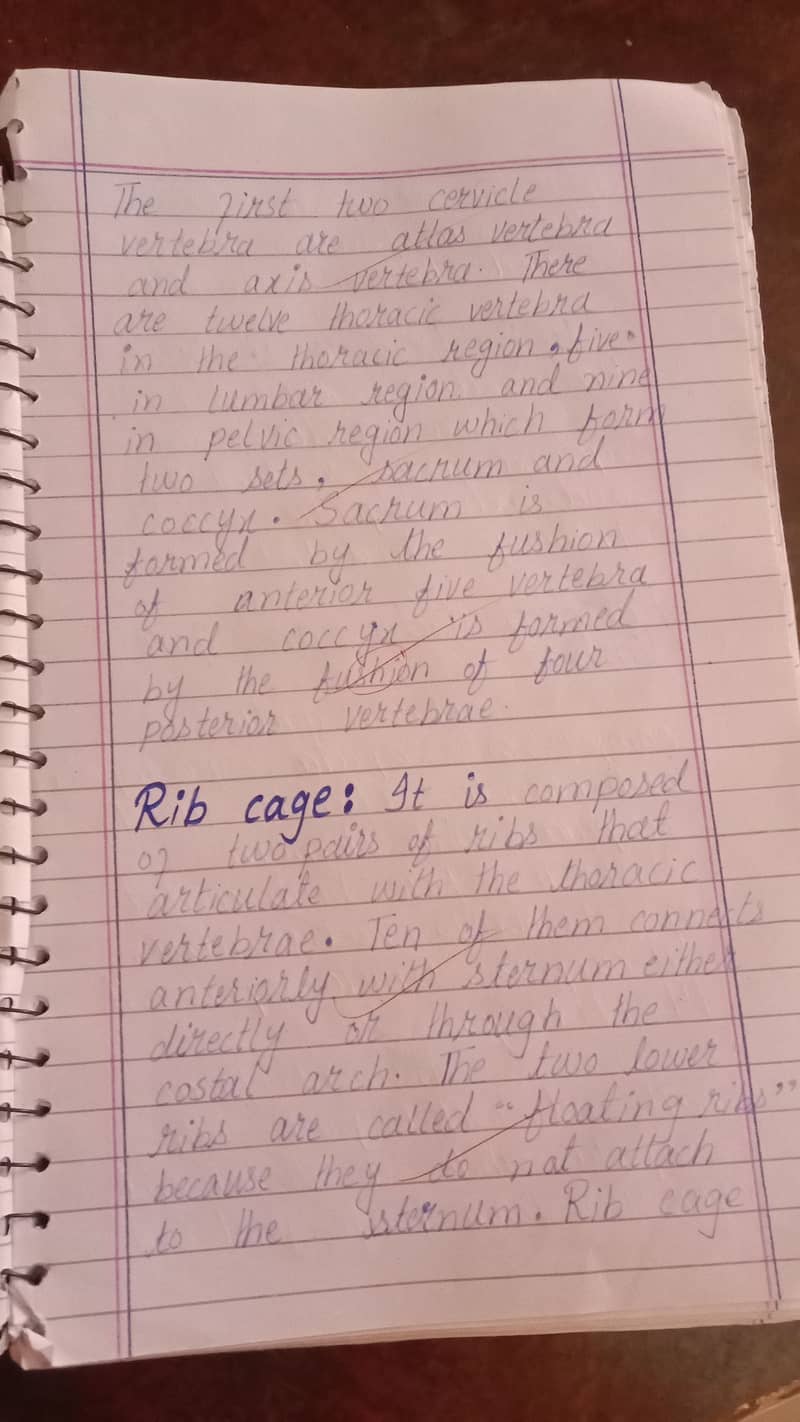 The first two cervicle
vertebra are atlas vertebra
and axis vertebra. There
are twelve thoracic vertebra
in the thoracic region, five
in lumbar region and nine
in pelvic region which form
two sets, sacrum and
coccyx. Sacrum is
formed by the fushion
of anterior five vertebra
and coccyx is formed
by the fushion of four
posterior vertebrae.
Rib cage: It is composed
of two pairs of ribs that
articulate with the thoracic
vertebrae. Ten of them connects
anteriorly with sternum either
directly or through the
costal arch. The two lower
ribs are called "floating ribs"
because they do not attach
to the sternum. Rib cage